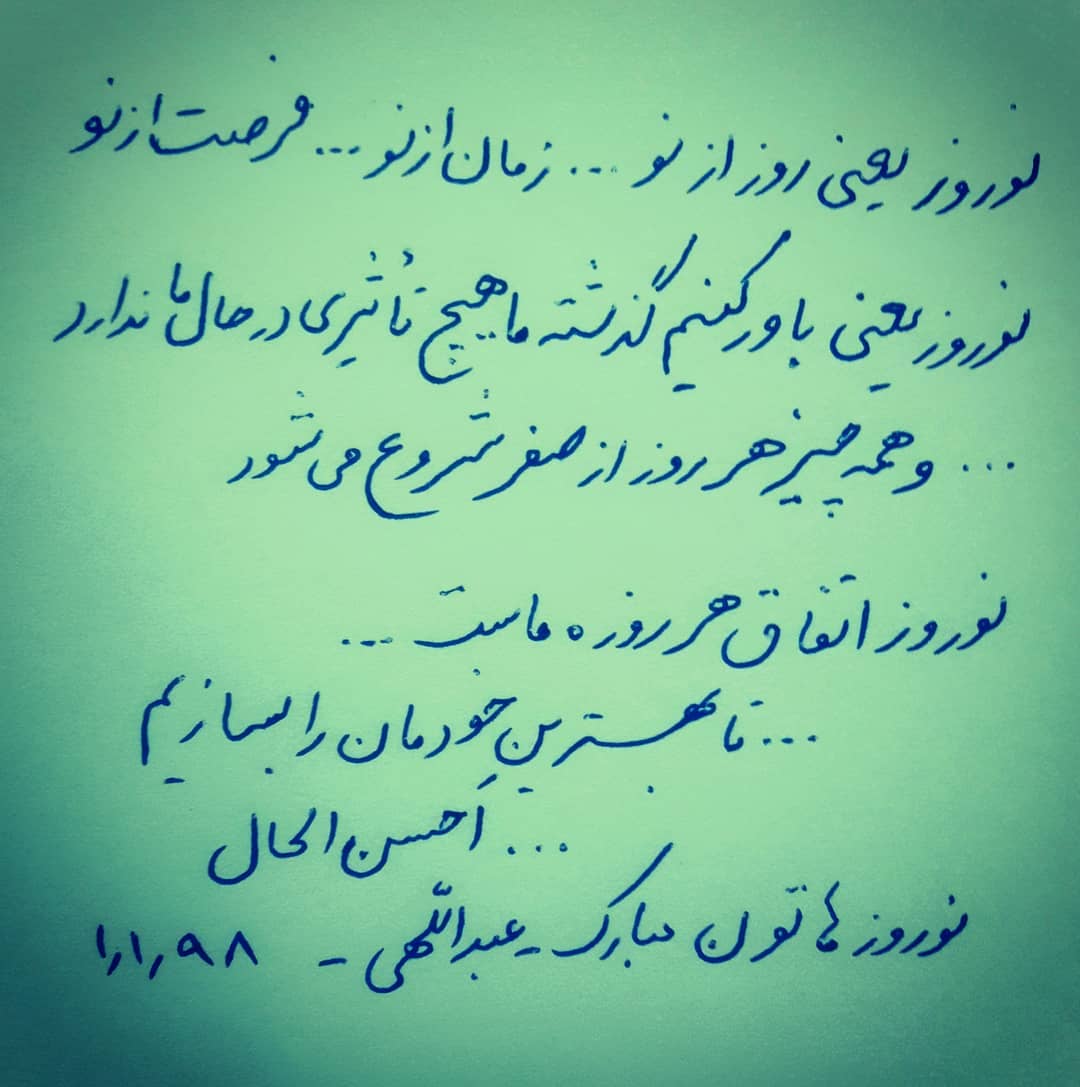 نوروز یعنی روز از نو ... زمان از نو ... فرصت از نو
نوروز یعنی باور کنیم گذشته ما هیچ تأثیری در حال ما ندارد
... و همه چیز هر روز از صفر شروع می شود
نوروز اتفاق هر روزه ماست ...
... تا بهترینِ خودمان را بسازیم
... اَحسن الحال
نوروز هاتون مبارک - عبداللهی - ۱٫۱٫۹۸